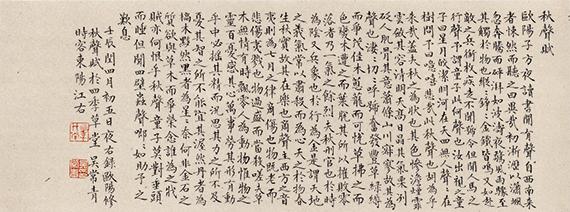 秋聲賦
歐陽子方夜讀書聞有聲自西南來
者悚然而聽之曰異哉初淅瀝以瀟颯
忽奔騰而砰湃如波濤夜驚風雨驟至
其觸於物也鏦鏦錚錚金鐵皆鳴又如赴
敵之兵銜枚疾走不聞號令但聞人馬之
行聲予謂童子此何聲也汝出視之童
子曰星月皎潔明河在天四無人聲聲在
樹間予曰噫嘻悲哉此秋聲也胡為乎
來哉蓋夫秋之為狀也其色慘淡煙霏
雲斂其容清明天高日晶其氣慄冽
砭人肌骨其意蕭條山川寂寥故其為
聲也淒淒切切呼號奮發豐草綠縟
而爭茂佳木蔥蘢而可悅草拂之而
色變木遭之而葉脫其所以摧敗零
落者乃一氣之餘烈夫秋刑官也於時
為陰又兵象也於行為金是謂天地
之義氣常以肅殺而為心天之於物春
生秋實故其在樂也商聲主西方之音
夷則為七月之律商傷也物既老而
悲傷夷戮也物過盛而當殺嗟夫草
木無情有時飄零人為動物惟物之
靈百憂感其心萬事勞其形有動
乎中必搖其精而況思其力之所不及
憂其智之所不能宜其渥然丹者為
槁木黟然黑者為星星奈何非金石之
質欲與草木而爭榮念誰為之戕
賊亦何恨乎秋聲童子莫對垂頭
而睡但聞四壁蟲聲唧唧如助予之
歎息
壬辰閏四月初五日夜右錄歐陽修
秋聲賦於四季草堂 吳常青
時客東陽江右